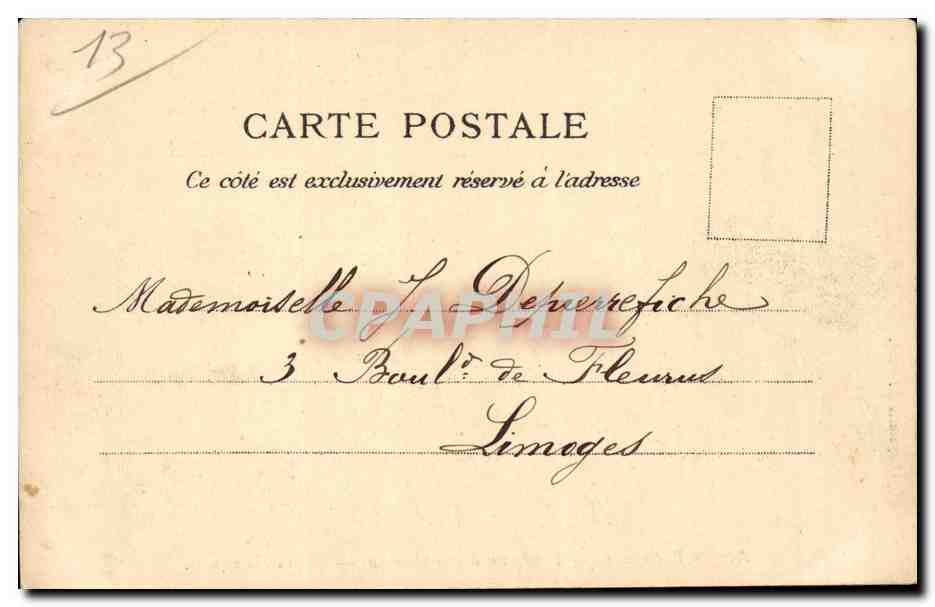 13
CARTE POSTALE
Ce côté est exclusivement réservé à l'adresse
Mademoiselle J. Depierrefiche
CPAPHIL
3 Boul.d de Fleurus
Limoges